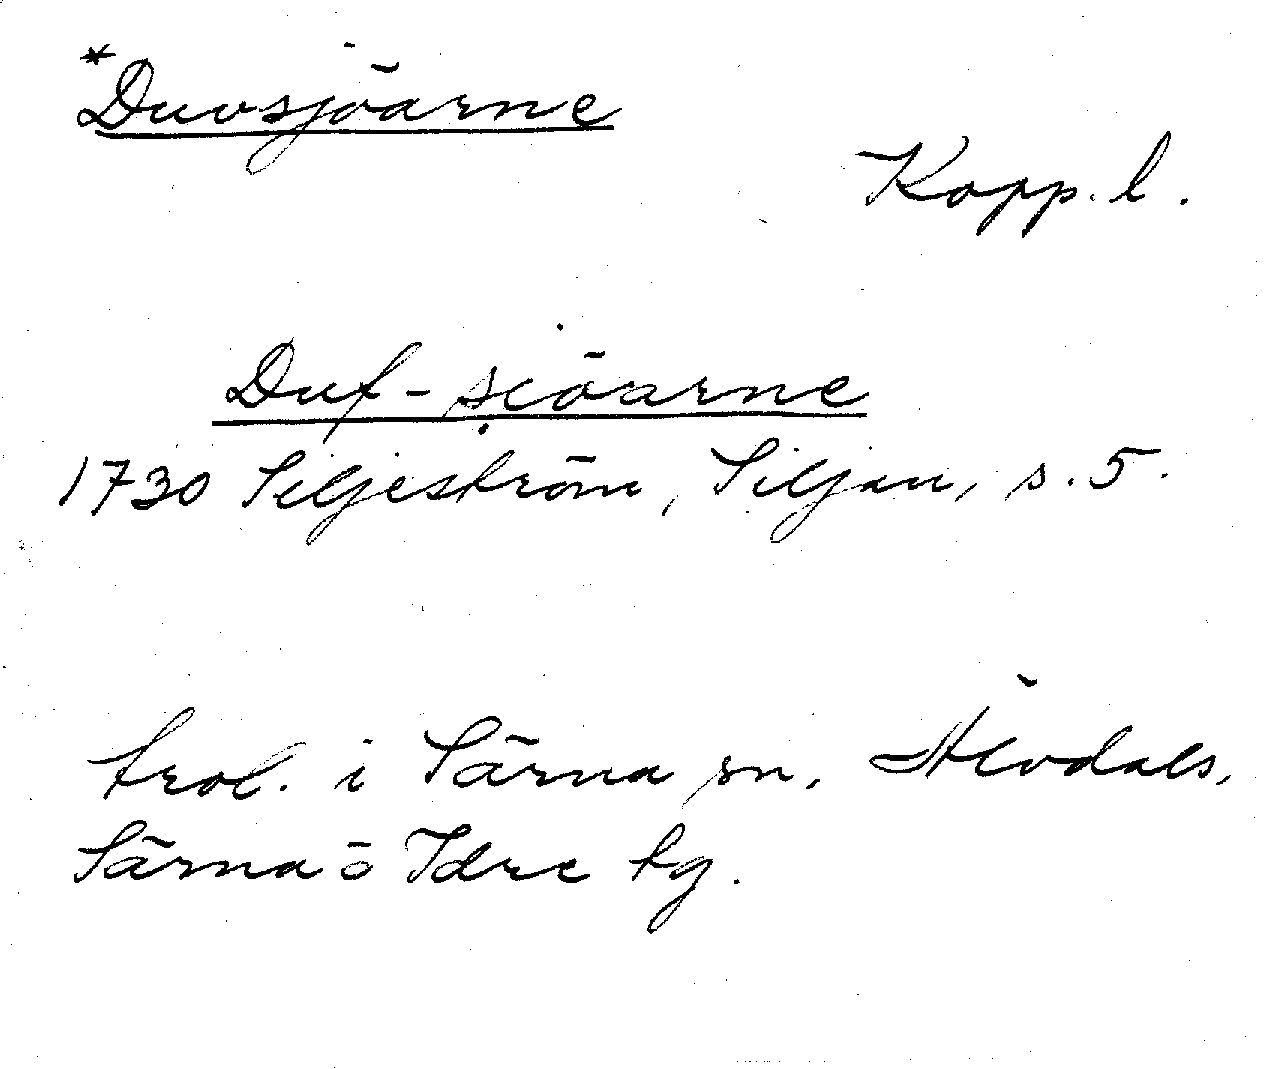 *Duvsjöarne
Kopp. l.
Duf-siöarne
1730 Siljeström, Siljan, s. 5.
trol. i Särna sn, Älvdals,
Särna o Idre tg.